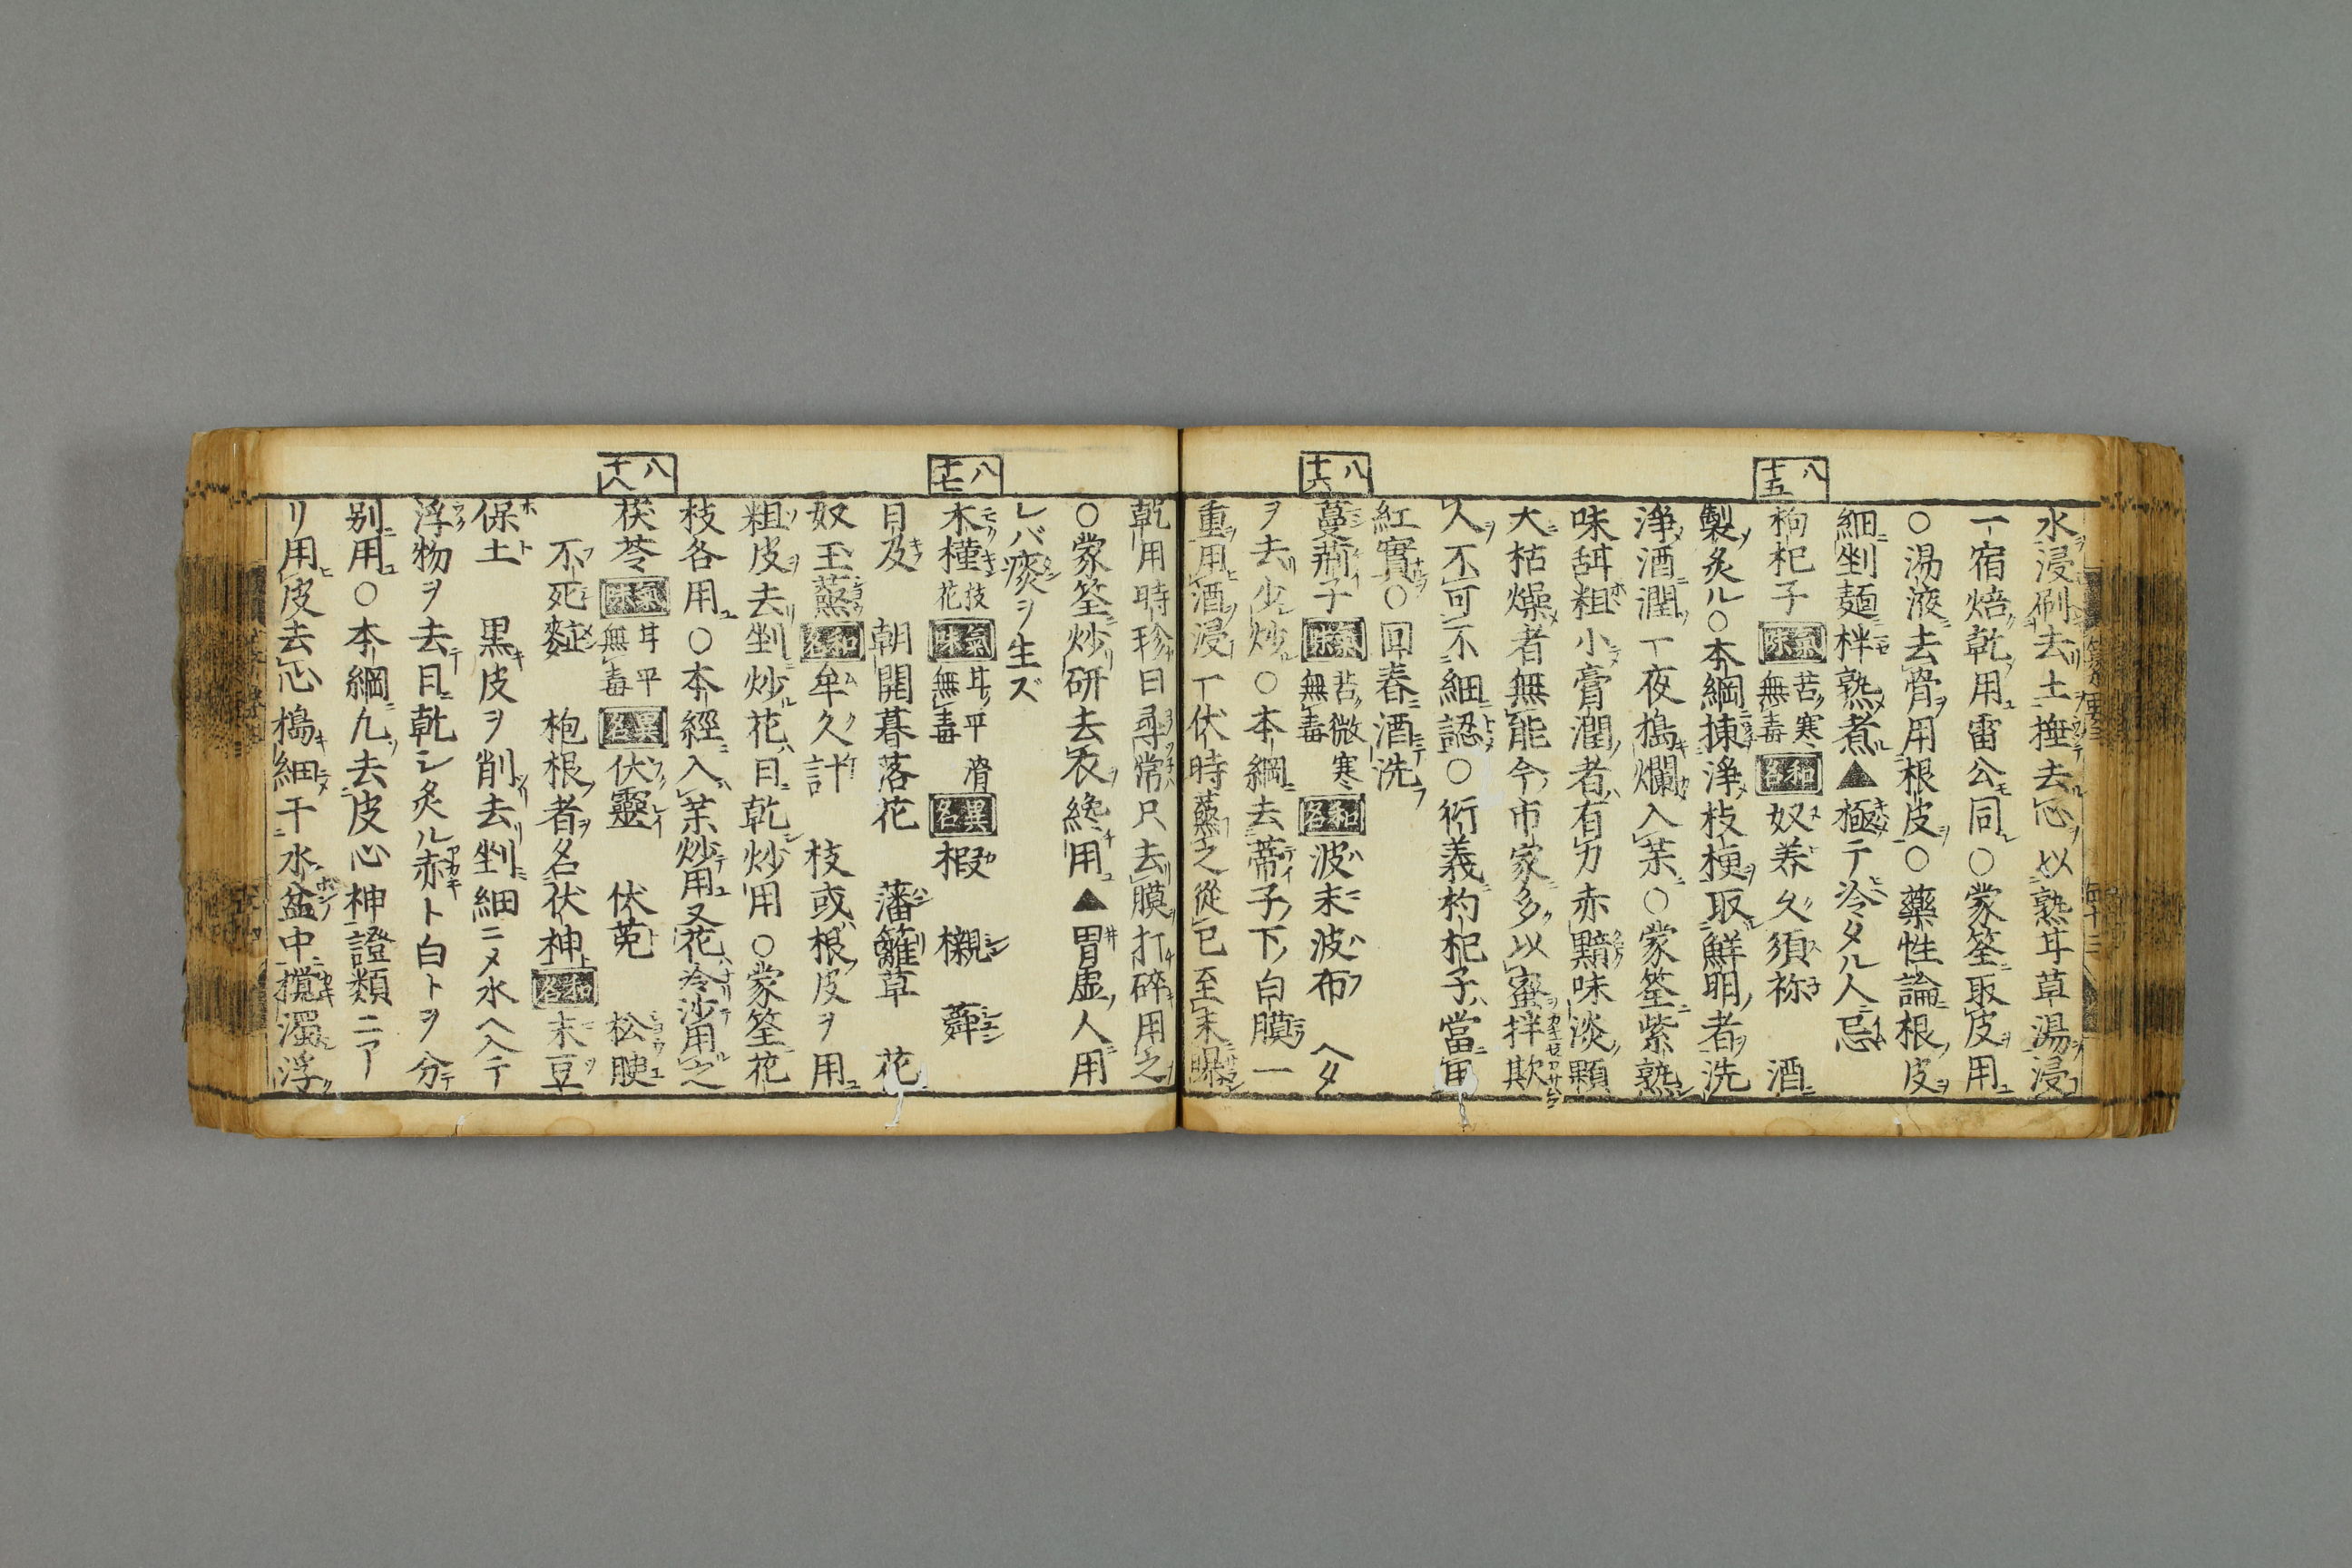 八十五
水浸刷去土捶去心以熟甘草湯浸
一宿焙乾用雷公同○蒙筌取皮用
○湯液去骨用根皮○藥性論根皮
細剉麺拌熟煮▲極テ冷タル人忌
枸杞子 氣味 苦寒無毒 和名 奴养久須祢 酒
製炙ル○本綱揀淨枝梗取鮮明者洗
淨酒潤一夜搗爛入茉○蒙筌紫熟
味甜粗小膏潤者有力赤黯味淡顆
大枯燥者無能今市家多以蜜拌欺
人不可不細認○衍義杓杞子當用
紅實○回春酒洗
八十六
蔓荊子 氣味 苦微寒無毒 和名 波末波布 ヘタ
ヲ去少炒○本綱去蒂子下白膜一
重用酒浸一伏時蒸之從巳至未晒
乾用時珍曰尋常只去膜打碎用之
○蒙筌炒研去衣纔用▲胃虚人用
レバ痰ヲ生ズ
八十七
木槿 花枝 氣味 甘平滑無毒 異名 椴 櫬 蕣
日及 朝開暮落花 藩籬草 花
奴玉蒸 和名 牟久計 枝或根皮ヲ用
粗皮去剉炒花日乾炒用○蒙筌花
枝各用○本經入茉炒用又花冷沙用之
八十八
茯苓 氣味 甘平無毒 異名 伏靈 伏菟 松腴
不死麪 枹根者名伏神 和名 末豆
保土 黒皮ヲ削去剉細ニメ水ヘ入テ
浮物ヲ去日乾シ炙ル赤ト白トヲ分
別用○本綱凢去皮心神證類ニアー
リ用皮去心搗細于水盆中攪濁浮